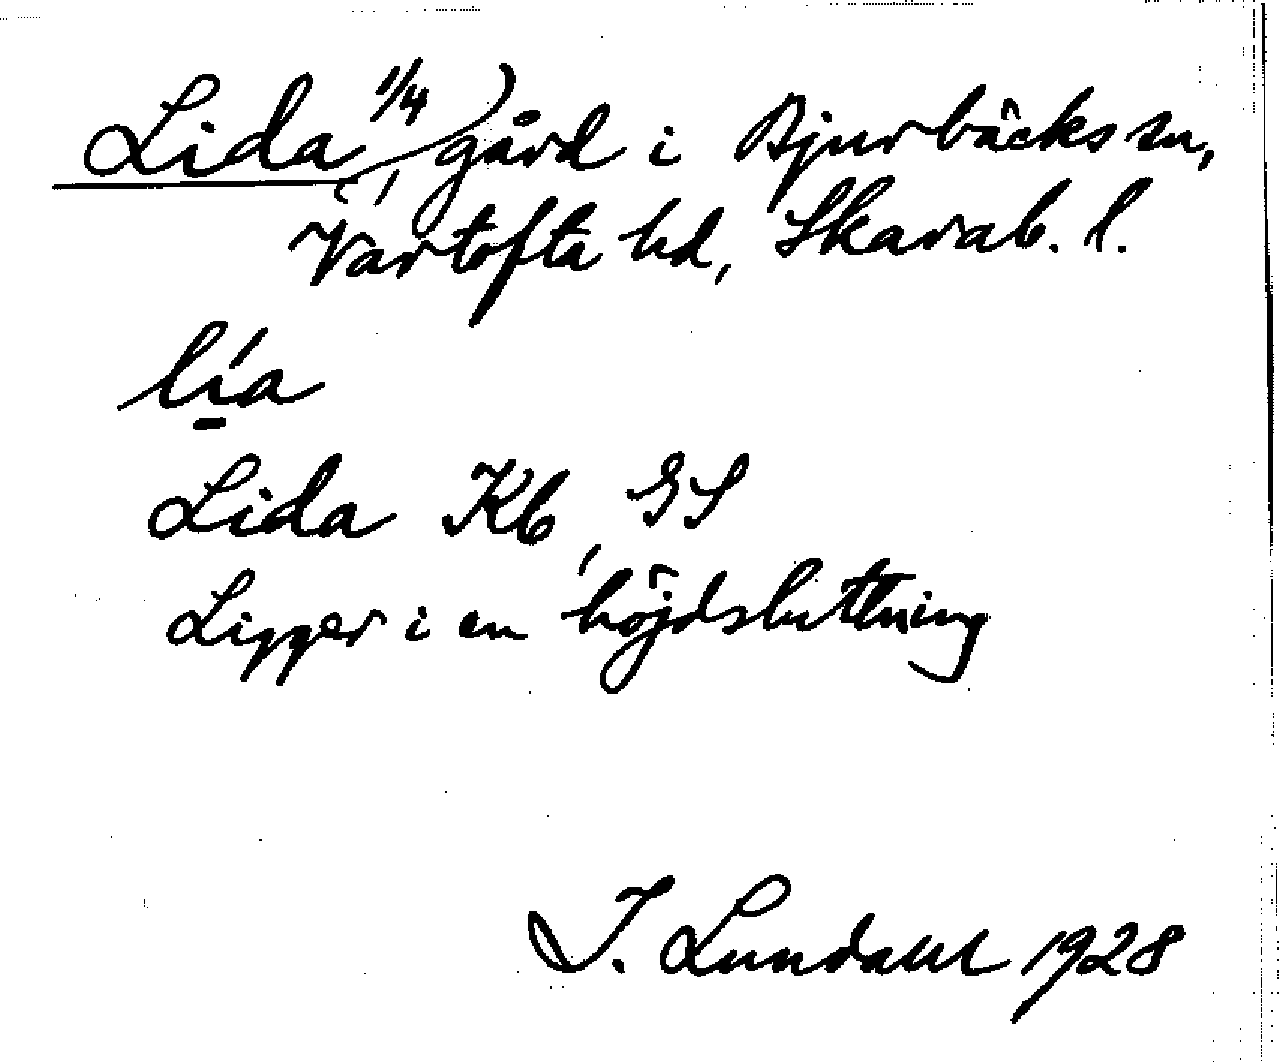 Lida, 1/4 gård i Bjurbäcks sn,
Vartofta hd, Skarab. l.
lía
Lida Kb, GS
Ligger i en höjdsluttning
I. Lundahl 1928